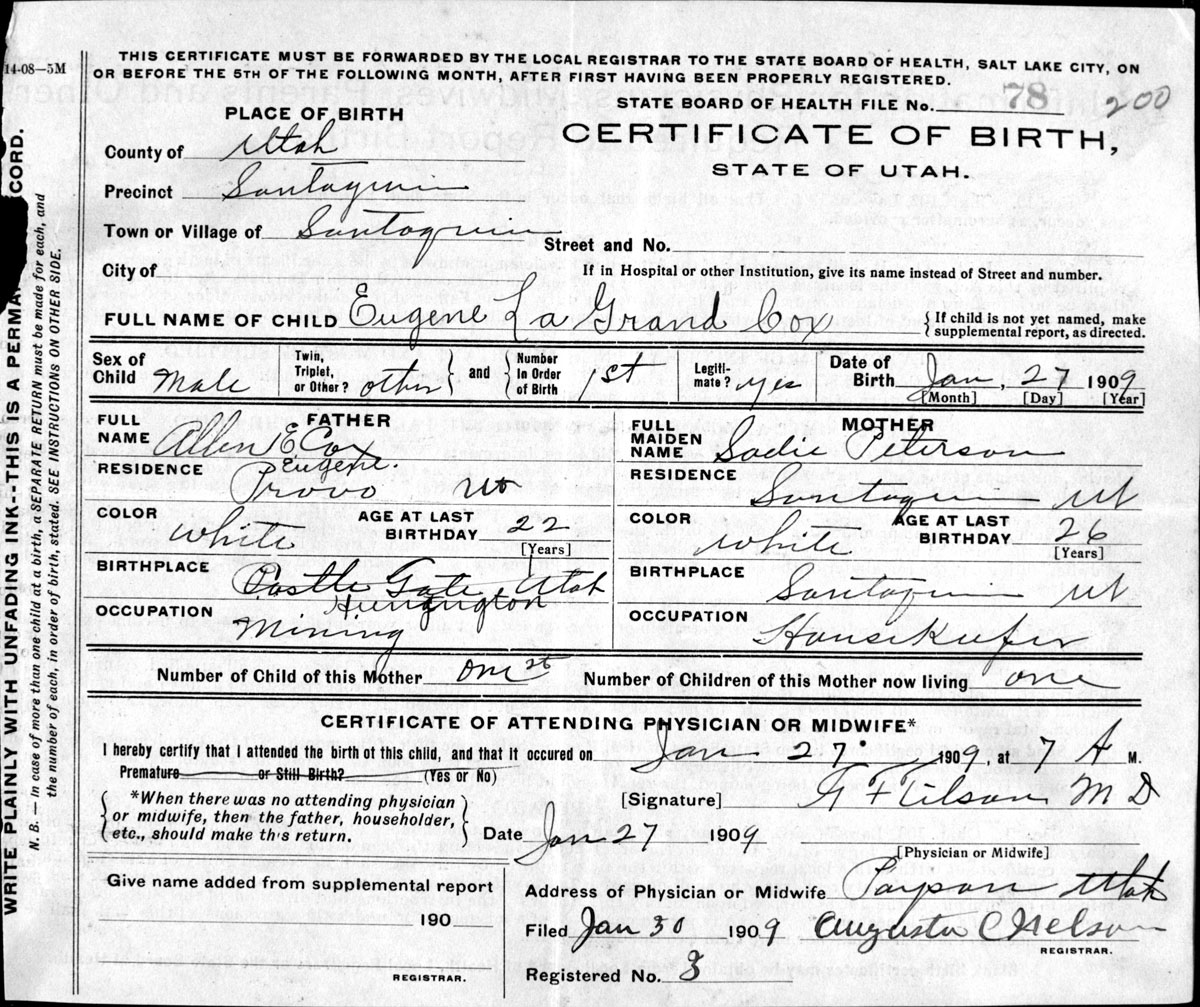 14-08—5M
THIS CERTIFICATE MUST BE FORWARDED BY THE LOCAL REGISTRAR TO THE STATE BOARD OF HEALTH, SALT LAKE CITY, ON
OR BEFORE THE 5TH OF THE FOLLOWING MONTH, AFTER FIRST HAVING BEEN PROPERLY REGISTERED.
STATE BOARD OF HEALTH FILE No. 78 200
PLACE OF BIRTH
CERTIFICATE OF BIRTH,
STATE OF UTAH.
County of Utah
Precinct Santaquin
Town or Village of Santaquin Street and No.
City of If in Hospital or other Institution, give its name instead of Street and number.
FULL NAME OF CHILD Eugene La Grand Cox { If child is not yet named, make
supplemental report, as directed.
Sex of Child Male Twin, Triplet, or Other? other } and { Number in Order of Birth 1st Legiti- mate? yes Date of Birth Jan, 27 1909
[Month] [Day] [Year]
FATHER
FULL NAME Allen E Cox
Eugene.
RESIDENCE Provo Ut
COLOR White AGE AT LAST BIRTHDAY 22
[Years]
BIRTHPLACE Castle Gate, Utah
Huntington
OCCUPATION Mining
MOTHER
FULL MAIDEN NAME Sadie Peterson
RESIDENCE Santaquin Ut
COLOR White AGE AT LAST BIRTHDAY 26
[Years]
BIRTHPLACE Santaquin Ut
OCCUPATION Housekeeper
Number of Child of this Mother one st Number of Children of this Mother now living one
CERTIFICATE OF ATTENDING PHYSICIAN OR MIDWIFE*
I hereby certify that I attended the birth of this child, and that it occured on Jan. 27. 1909, at 7 A M.
Premature or Still Birth? (Yes or No)
{ *When there was no attending physician
or midwife, then the father, householder,
etc., should make this return. }
[Signature] Tilson M D
Date Jan 27 1909
[Physician or Midwife]
Give name added from supplemental report
190
REGISTRAR.
Address of Physician or Midwife Payson Utah
Filed Jan 30 1909 Augusta C Nelson
REGISTRAR.
Registered No. 3
WRITE PLAINLY WITH UNFADING INK--THIS IS A PERMA CORD.
N. B. — In case of more than one child at a birth, a SEPARATE RETURN must be made for each, and
the number of each, in order of birth, stated. SEE INSTRUCTIONS ON OTHER SIDE.